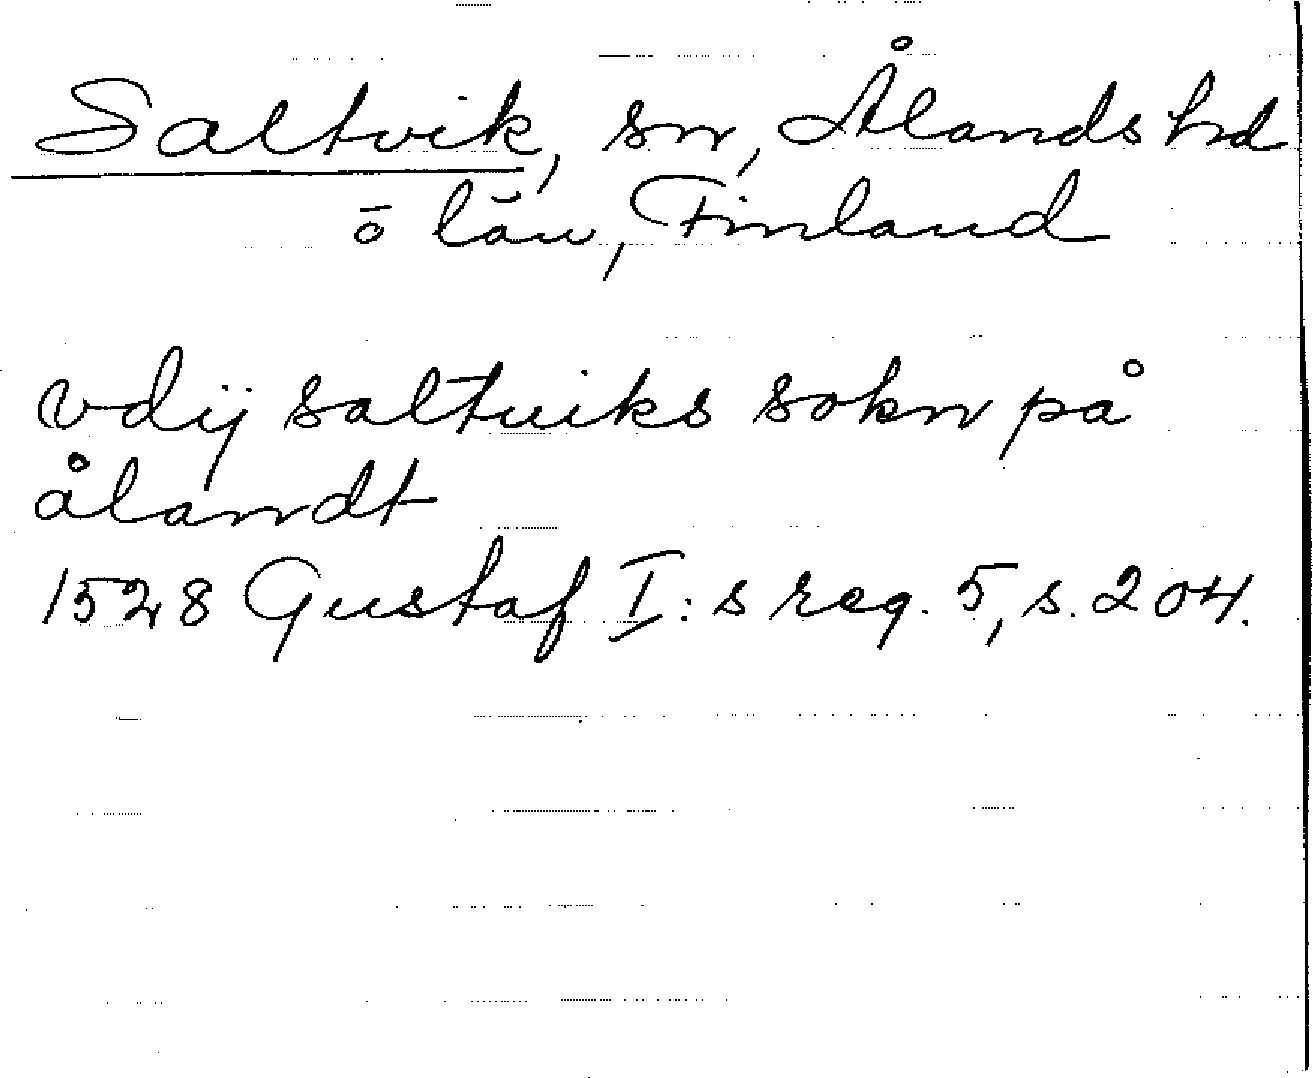 Saltvik, sn, Ålands hd
ō län, Finland
vdij saltuiks sokn på
ålandt
1528 Gustaf I:s reg. 5, s. 204.